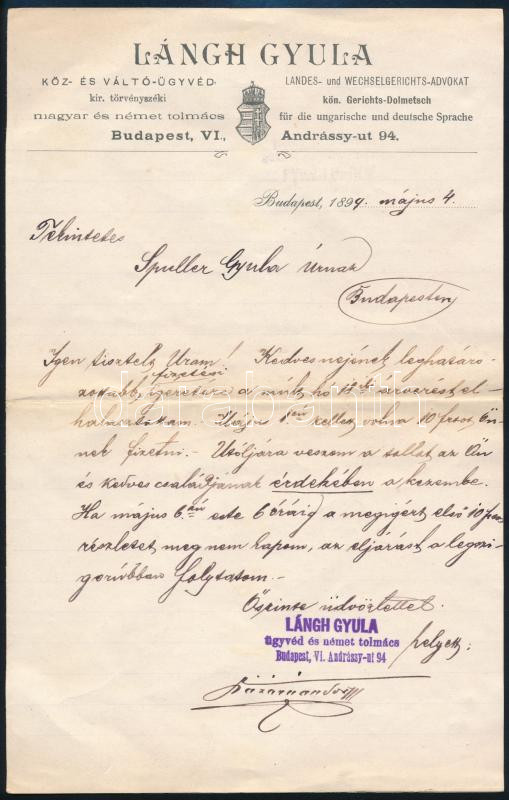 LÁNGH GYULA
KÖZ- ÉS VÁLTÓ-ÜGYVÉD
kir. törvényszéki
magyar és német tolmács
Budapest, VI.,
LANDES- und WECHSELGERICHTS-ADVOKAT
kön. Gerichts-Dolmetsch
für die ungarische und deutsche Sprache
Andrássy-ut 94.
Budapest, 1899. május 4.
Tekintetes
Spuller Gyula Úrnak
Budapesten
Igen tisztelt Uram! Kedves nejének leghatáro-
zottabb fizetési igéretére a mult hó 17-ki árverést el-
halasztottam. Május 1-én kellett volna 10 frtot Ön-
nek fizetni.- Utóljára veszem a tollat az Ön
és kedves családjának érdekében a kezembe.
Ha május 6-án este 6 óráig a megigért első 10 frtos
részletet meg nem kapom, az eljárást a legszi-
gorúbban folytatom.-
Őszinte üdvözlettel
LÁNGH GYULA
ügyvéd és német tolmács
Budapest, VI. Andrássy-ut 94
helyett:
darabanth